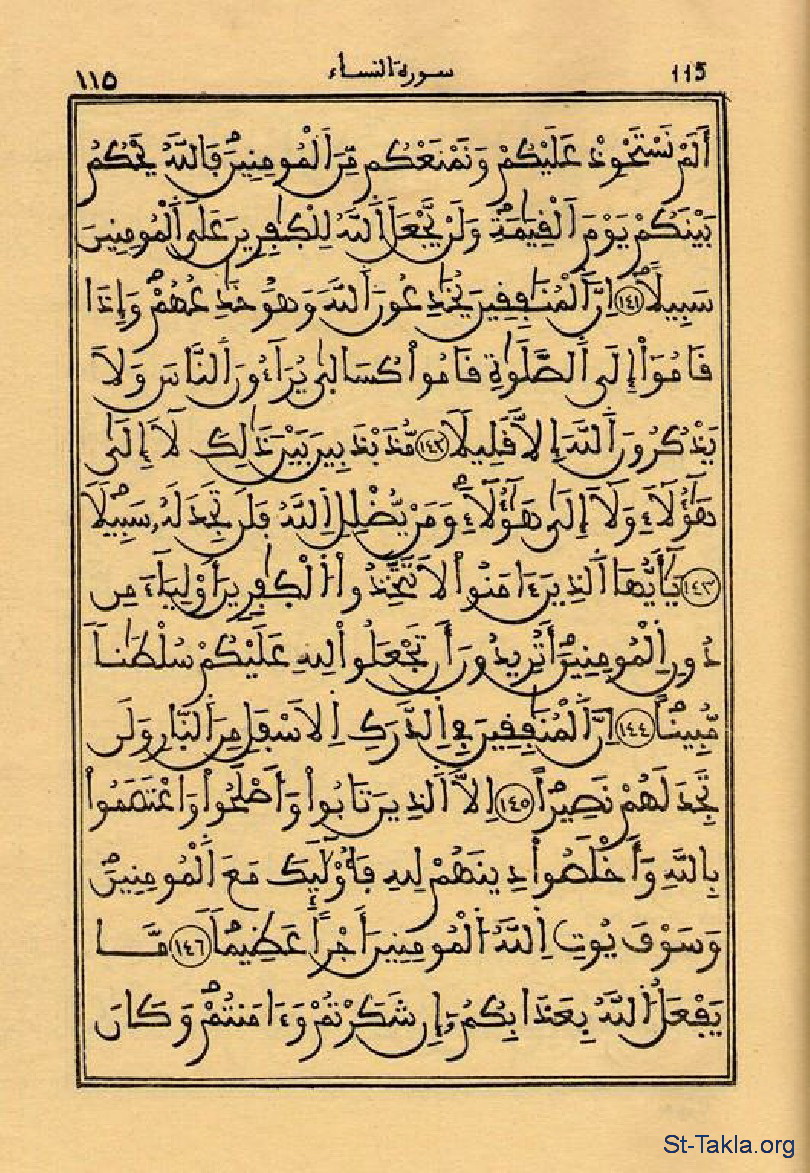 ١١٥ سورة النساء 115
أَلَمْ نَسْتَحْوِذْ عَلَيْكُمْ وَنَمْنَعْكُم مِّنَ اَلْمُومِنِينَ فَاللَّهُ يَحْكُمُ
بَيْنَكُمْ يَوْمَ اَلْقِيَٰمَةِ وَلَنْ يَّجْعَلَ اَللَّهُ لِلْكٰفِرِينَ عَلَى اَلْمُومِنِينَ
سَبِيلًا ١٤١ اِنَّ اَلْمُنَٰفِقِينَ يُخَٰدِعُونَ اَللَّهَ وَهُوَ خَٰدِعُهُمْ وَإِذَا
قَامُوٓاْ إِلَى اَلصَّلَوٰةِ قَامُواْ كُسَالَىٰ يُرَآءُونَ اَلنَّاسَ وَلَا
يَذْكُرُونَ اَللَّهَ إِلَّا قَلِيلًا ١٤٢ مُّذَبْذَبِينَ بَيْنَ ذَٰلِكَ لَآ إِلَىٰ
هَٰٓؤُلَآءِ وَلَآ إِلَىٰ هَٰٓؤُلَآءِ وَمَنْ يُّضْلِلِ اِللَّهُ فَلَن تَجِدَ لَهُۥ سَبِيلًا
١٤٣ يَٰٓأَيُّهَا اَلذِينَ ءَامَنُواْ لَا تَتَّخِذُواْ اُلْكٰفِرِينَ أَوْلِيَآءَ مِن
دُونِ اِلْمُومِنِينَ أَتُرِيدُونَ أَن تَجْعَلُواْ لِلهِ عَلَيْكُمْ سُلْطَٰناً
مُّبِيناً ١٤٤ اِنَّ اَلْمُنَٰفِقِينَ فِي اِلدَّرَكِ اِلَاسْفَلِ مِنَ اَلنَّارِ وَلَن
تَجِدَ لَهُمْ نَصِيراً ١٤٥ اِلَّا اَلذِينَ تَابُواْ وَأَصْلَحُواْ وَاعْتَصَمُواْ
بِاللَّهِ وَأَخْلَصُواْ دِينَهُمْ لِلهِ فَأُوْلَٰٓئِكَ مَعَ اَلْمُومِنِينَ
وَسَوْفَ يُوتِ اِللَّهُ اُلْمُومِنِينَ أَجْراً عَظِيماً ١٤٦ مَّا
يَفْعَلُ اُللَّهُ بِعَذَابِكُمُۥٓ إِن شَكَرْتُمْ وَءَامَنتُمْ وَكَانَ
St-Takla.org